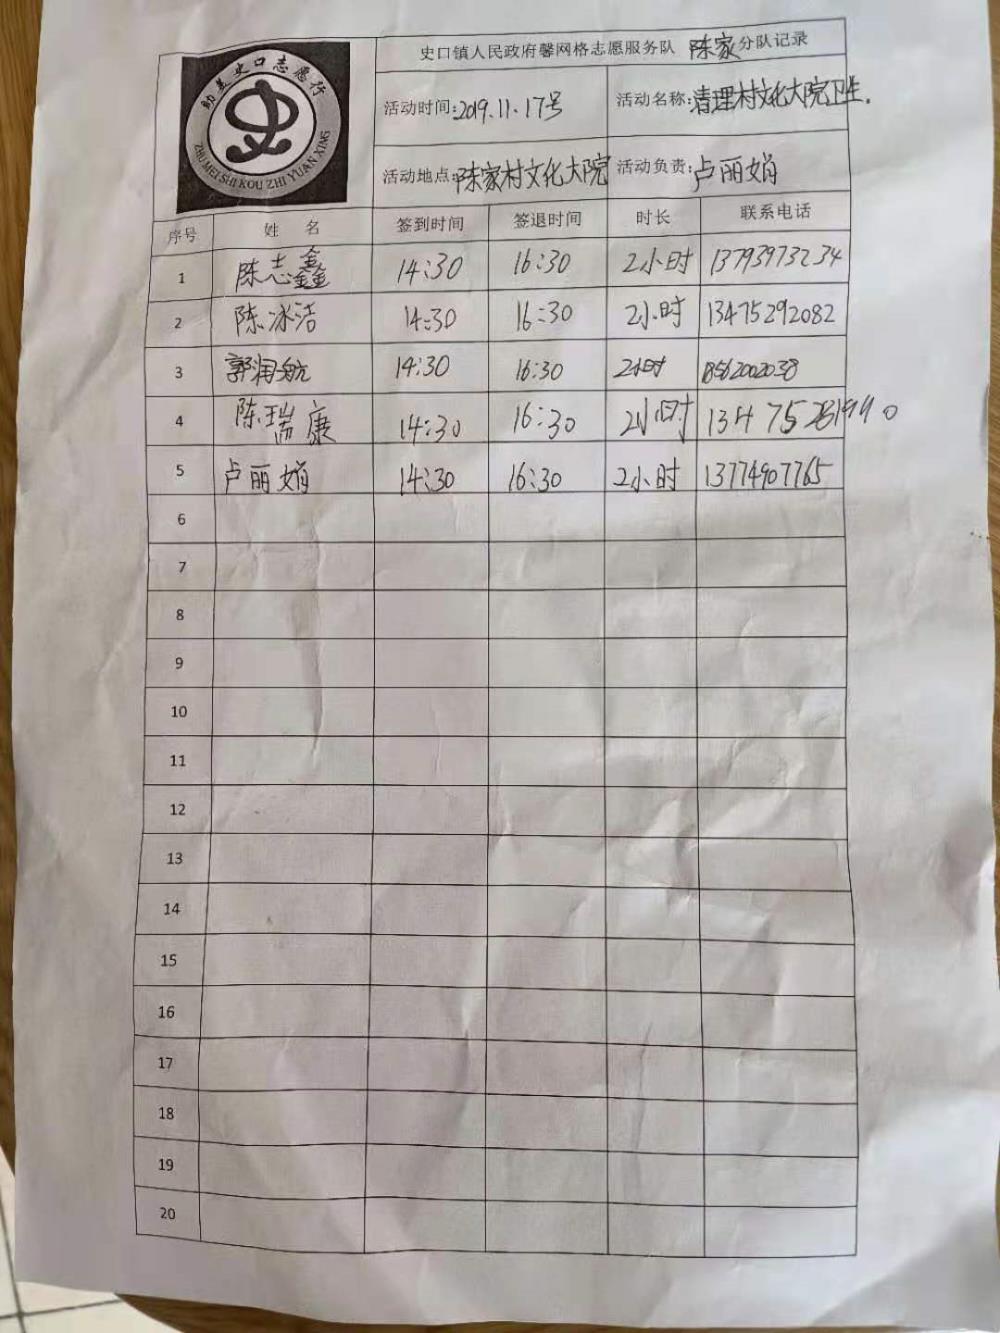 助美史口志愿行
史
ZHU MEI SHI KOU ZHI YUAN XING
史口镇人民政府馨网格志愿服务队 陈家 分队记录
活动时间:2019.11.17号 活动名称:清理村文化大院卫生.
活动地点:陈家村文化大院 活动负责:卢丽娟
序号 姓 名 签到时间 签退时间 时长 联系电话
1 陈志鑫 14:30 16:30 2小时 13793973234
2 陈冰洁 14:30 16:30 2小时 13475292082
3 郭润航 14:30 16:30 2小时
4 陈瑞康 14:30 16:30 2小时
5 卢丽娟 14:30 16:30 2小时 13774907765
6
7
8
9
10
11
12
13
14
15
16
17
18
19
20